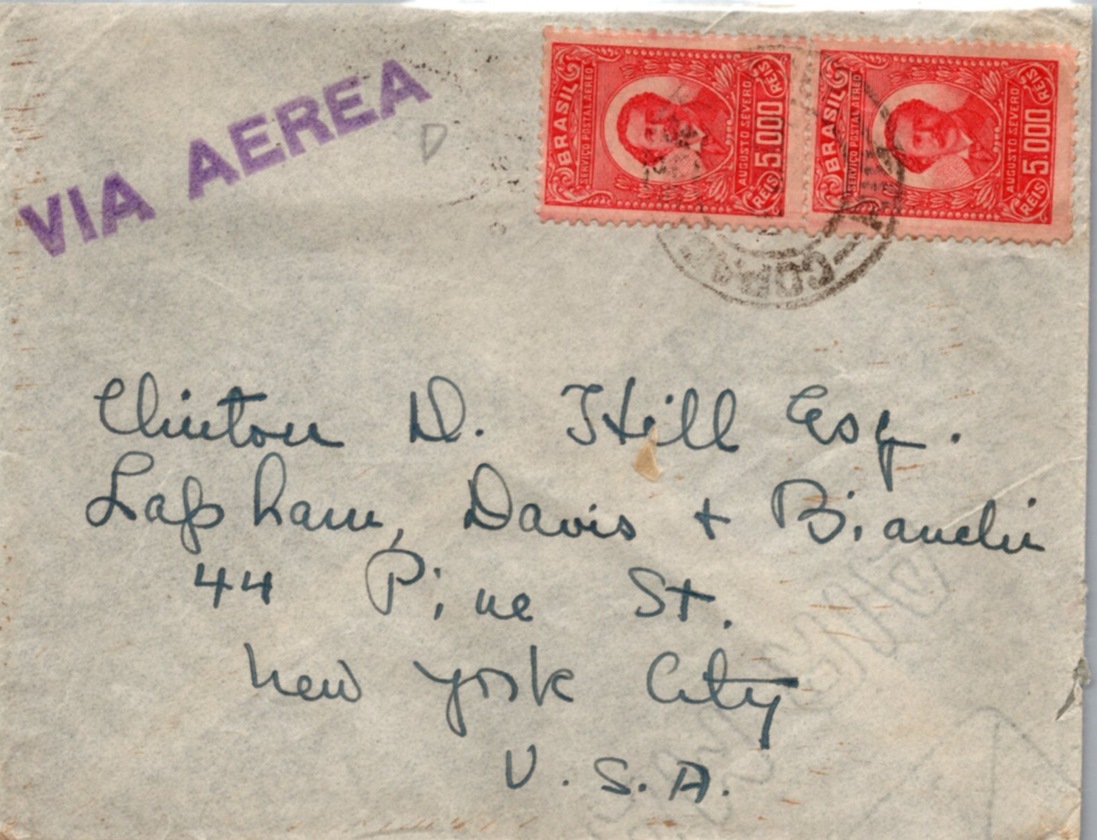 VIA AEREA
D
BRASIL
SERVIÇO POSTAL AÉREO
AUGUSTO SEVERO
REIS 5.000 REIS
BRASIL
SERVIÇO POSTAL AÉREO
AUGUSTO SEVERO
REIS 5.000 REIS
Clinton D. Hill Esq.
Lapham, Davis + Bianchi
44 Pine St.
New York City
U.S.A.